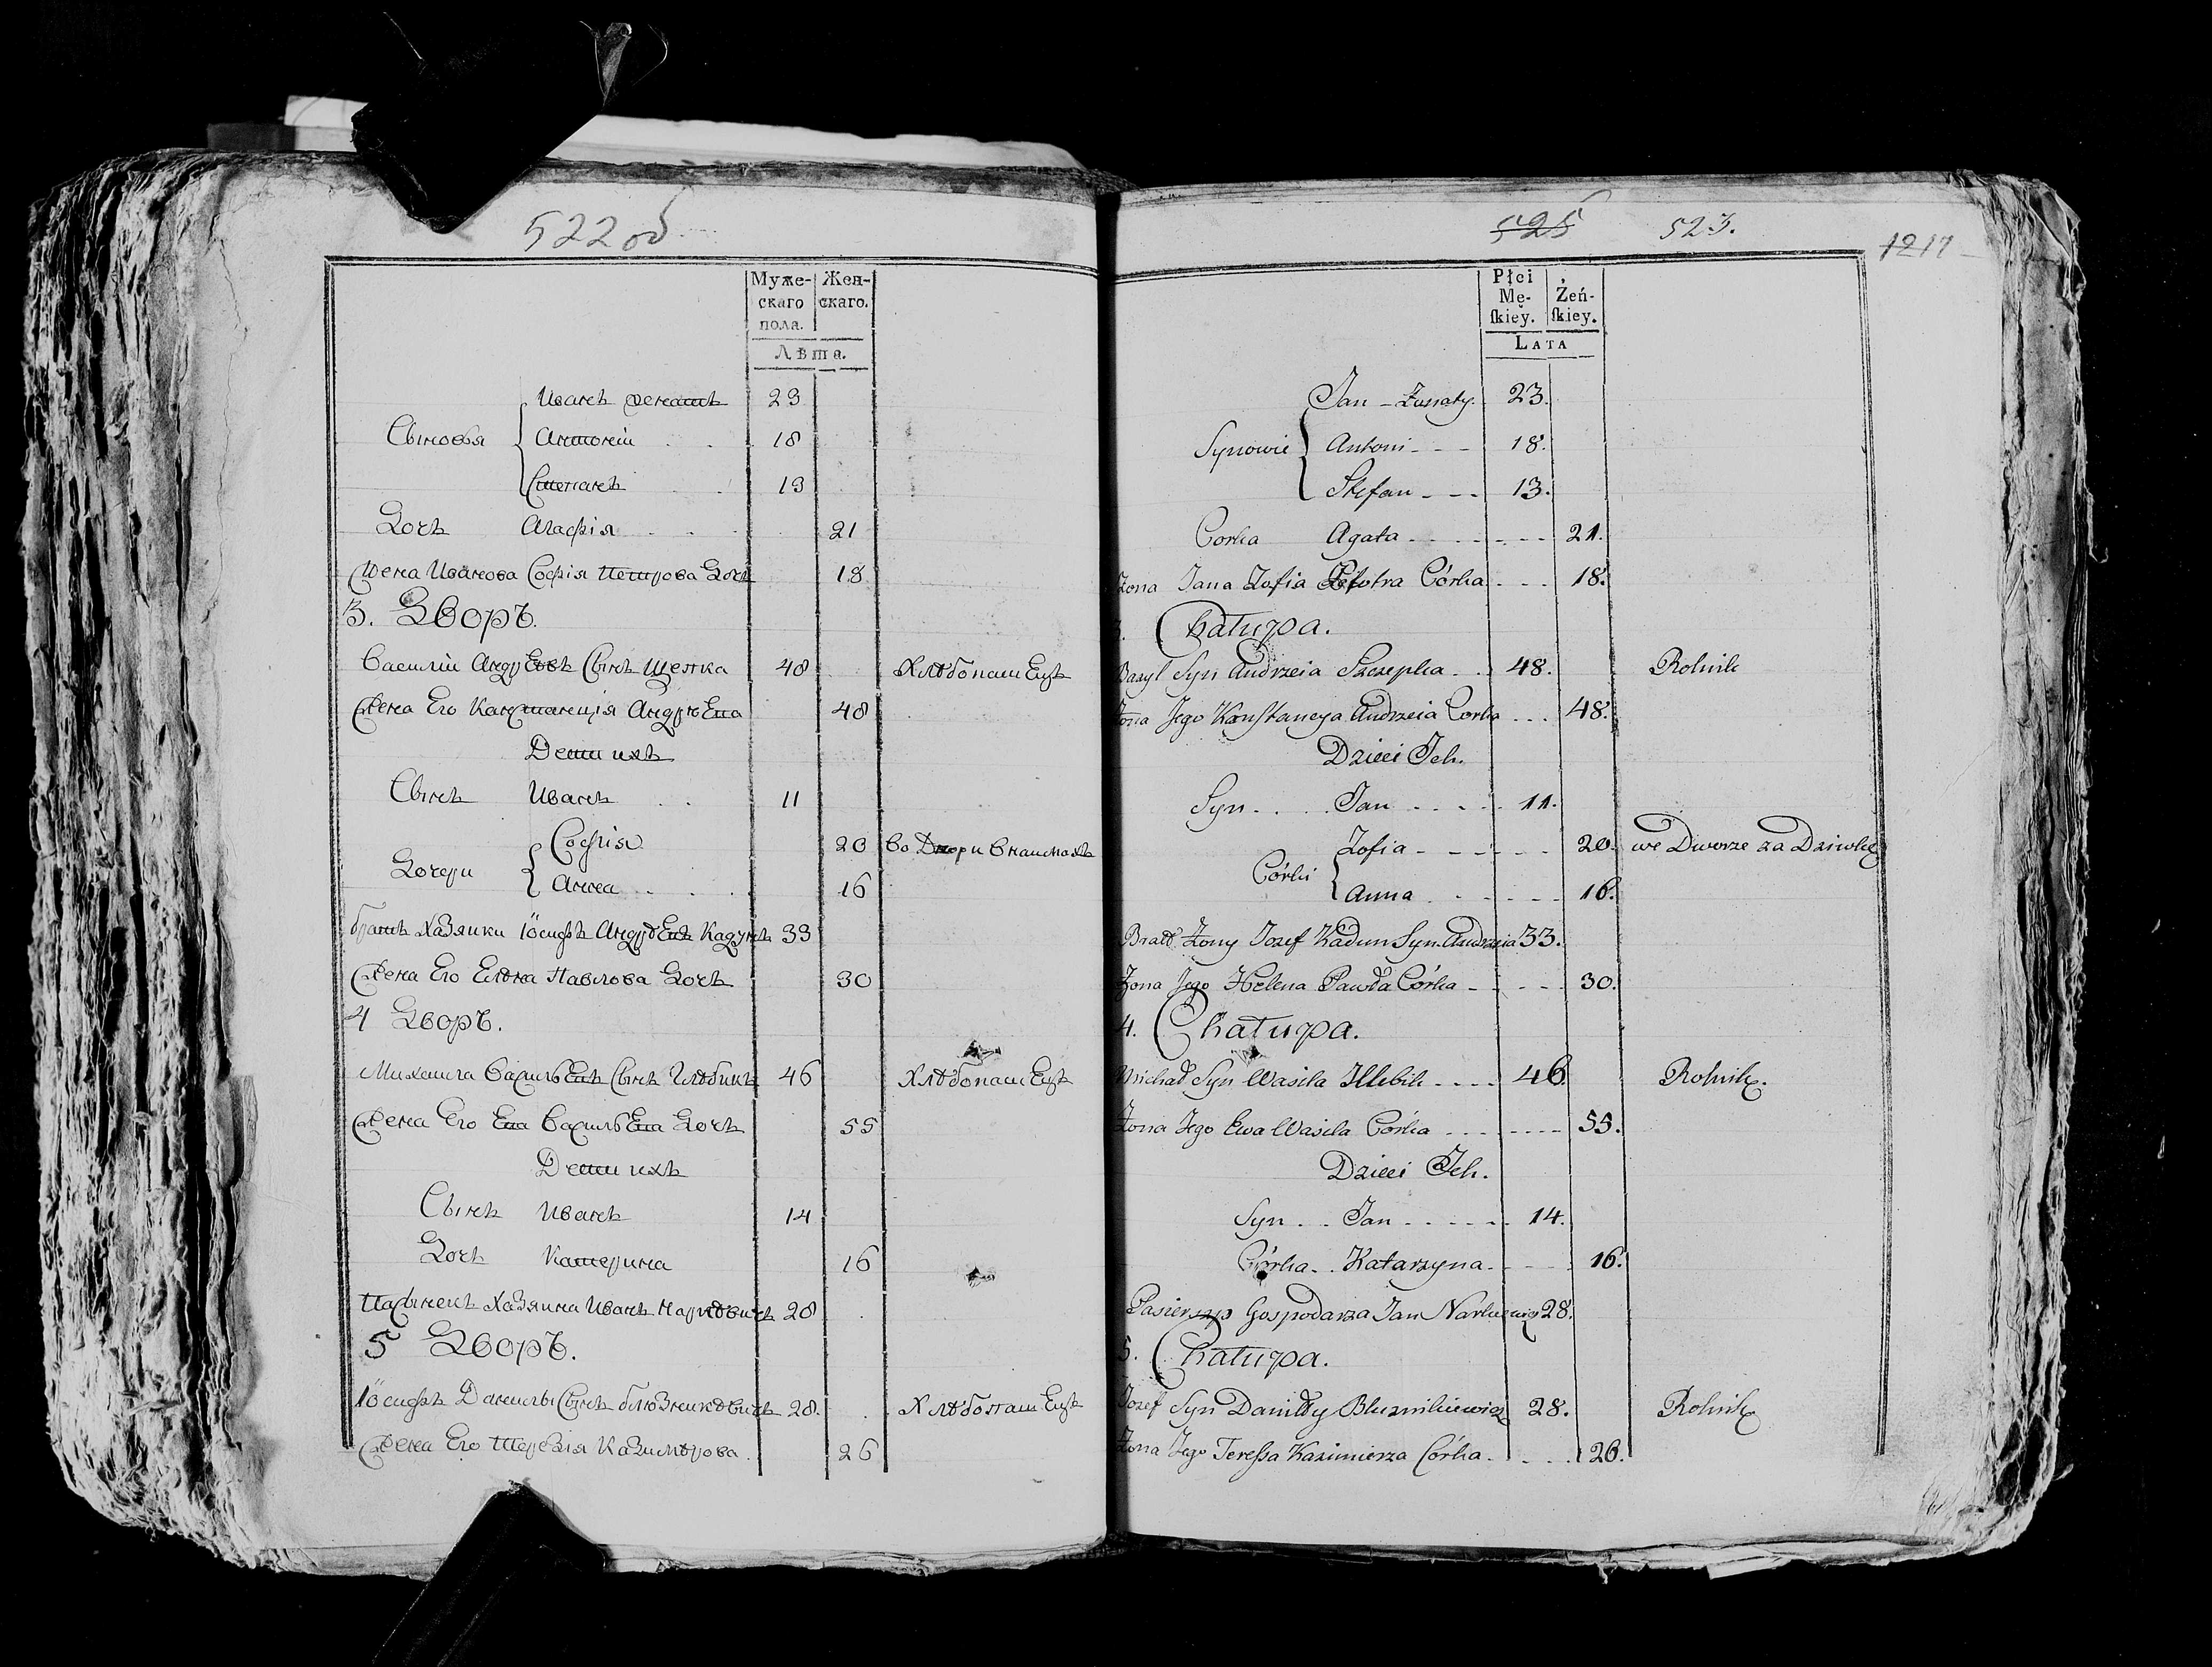 522 об
Муже-
скаго
пола.
Жен-
скаго.
Лѣта.
Иванъ женатъ 23
Сыновья Антоній 18
Степанъ 13
Дочь Агафія 21
Жена Иванова Софія Петрова Дочь 18
3. Дворъ.
Василій Андреевъ Сынъ Щепка 48 Хлѣбопашецъ
Жена Его Констанція Андрѣева 48
Дети ихъ
Сынъ Иванъ 11
Софія 20 во Двори внаимахъ
Дочери
Анна 16
братъ Хазяики Іосифъ Андрѣевъ Кадунъ 33
Жена Его Елѣна Павлова Дочь 30
4 Дворъ.
Михаила Василѣевъ Сынъ Глѣбикъ 46 Хлѣбопашецъ
Жена Его Ева Василѣева Дочь 55
Дети ихъ
Сынъ Иванъ 14
Дочь Катерина 16
Пасынокъ Хазяина Иванъ 28
5 Дворъ.
Іосифъ Данилы Сынъ блюзникѣвичъ 28. Хлѣбопашецъ
Жена Его Терезія Казимѣрова 26
525 523.
1217
Płci
Mę-
ſkiey.
Żeń-
ſkiey.
LATA
Jan - Żonaty. 23.
Synowie Antoni - - - 18.
Stefan - - - 13.
Corka Agata - - - 21.
Żona Jana Zofia Piotra Córka - - - 18.
3. Chałupa.
Bazyl Syn Andrzeia Szczepka - . 48. Rolnik
Żona Jego Konſtancya Andrzeia Corka . . . 48.
Dzieci Ich.
Syn . . . Jan - - - 11.
Zofia - - - 20. we Dworze za Dziwkę
Córki
Anna - - - 16.
Brat Żony Jozef Kadun Syn Andrzeia 33.
Żona Jego Helena Pawła Córka - - - 30.
4. Chałupa.
Michał Syn Wasila Hlebik - - - 46 Rolnik.
Żona Jego Ewa Wasila Córka - - - 55.
Dzieci Ich.
Syn . . Jan - - - 14.
Córka . . Katarzyna - - - 16.
Pasierzp Gospodarza Jan Narkiewicz 28.
5. Chałupa.
Jozef Syn Daniłły Bluznikiewicz 28. Rolnik
Żona Jego Tereſsa Kazimierza Córka . . . 26.